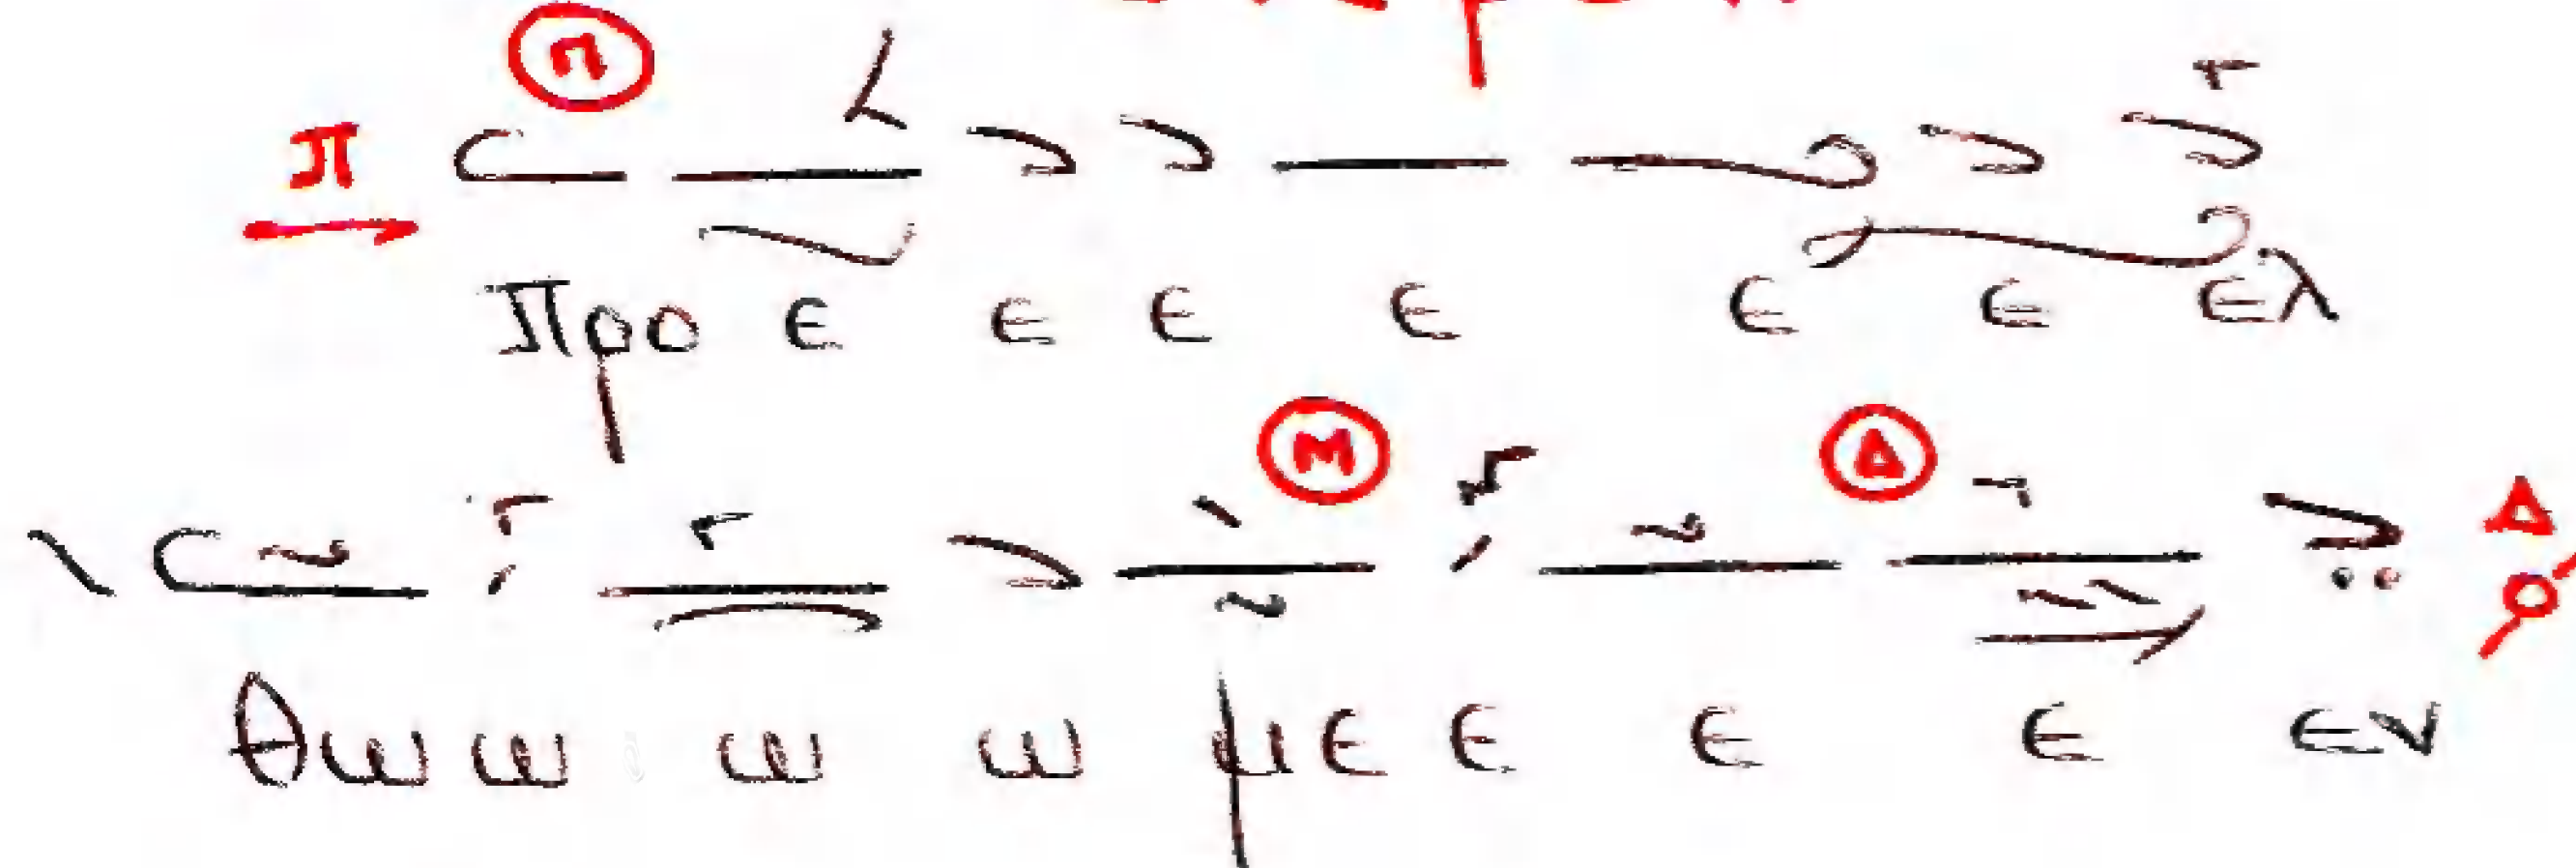 Προ ε ε ε ε ε ε ελ
θω ω ω ω με ε ε ε εν